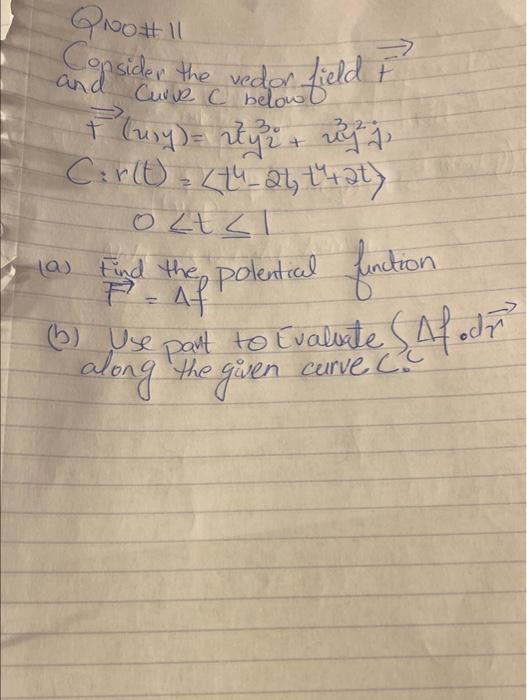 QNO#11
Consider the vector field F→
and curve C below
F→(x,y) = x²y³i + x³y²j,
C: r(t) = <t⁴-2t, t⁴+2t>
0 < t ≤ 1
(a) Find the potential function
F→ = Δf
(b) Use part to Evaluate ∫c Δf.dr→
along the given curve C.